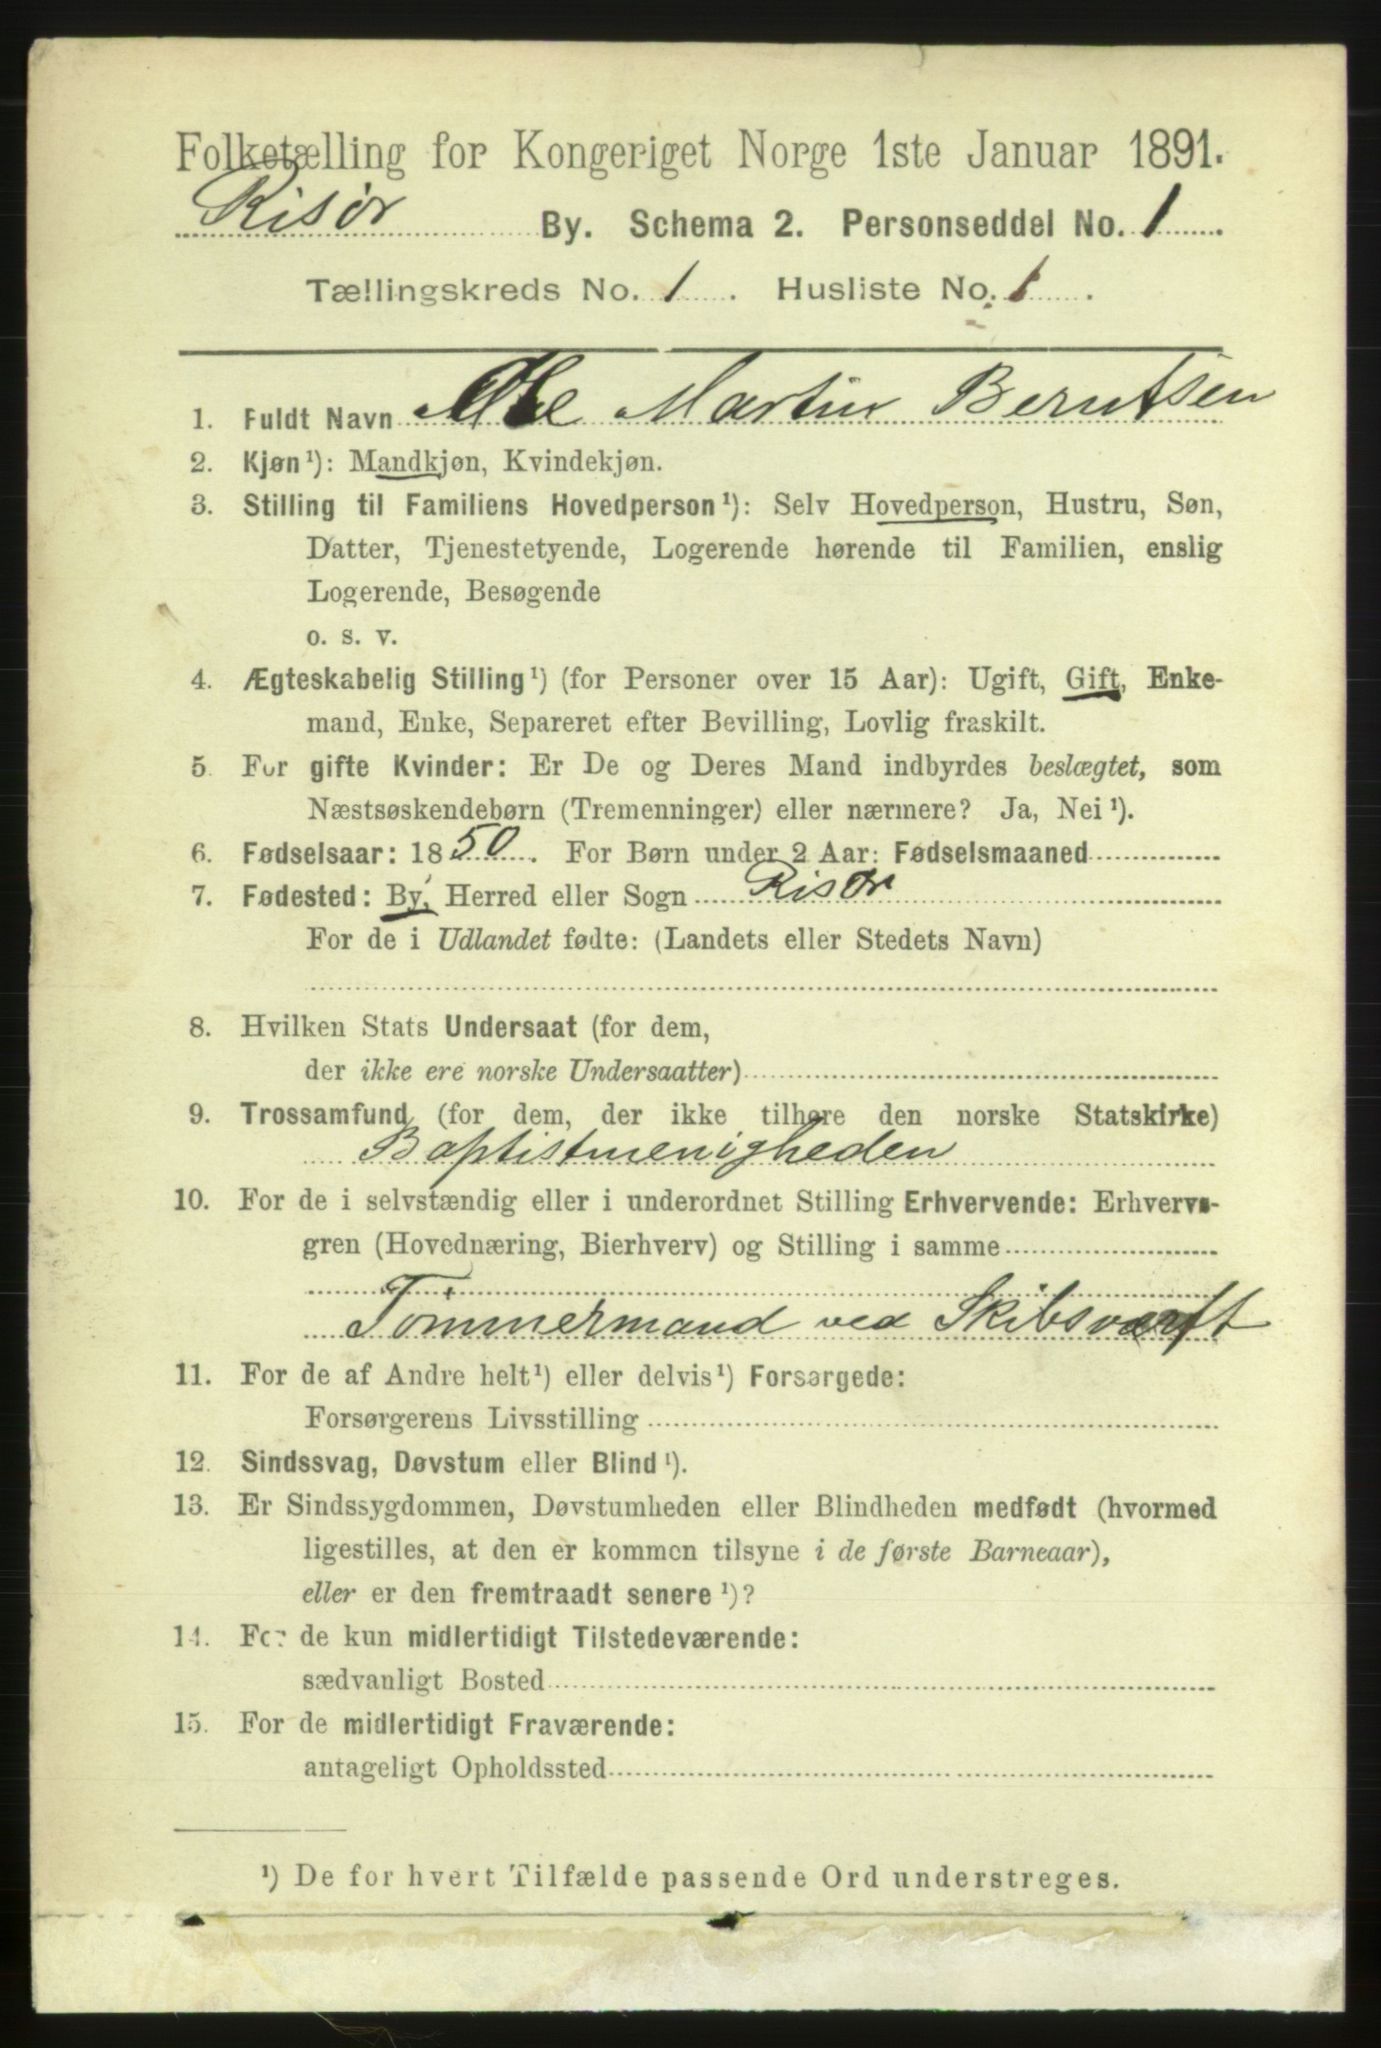 Folketælling for Kongeriget Norge 1ste Januar 1891.
Risør By. Schema 2. Personseddel No. 1
Tællingskreds No. 1. Husliste No. 1.
1. Fuldt Navn Martin Berntsen
2. Kjøn ¹): Mandkjøn, Kvindekjøn.
3. Stilling til Familiens Hovedperson ¹): Selv Hovedperson, Hustru, Søn,
Datter, Tjenestetyende, Logerende hørende til Familien, enslig
Logerende, Besøgende
o. s. v.
4. Ægteskabelig Stilling ¹) (for Personer over 15 Aar): Ugift, Gift, Enke-
mand, Enke, Separeret efter Bevilling, Lovlig fraskilt.
5. For gifte Kvinder: Er De og Deres Mand indbyrdes beslægtet, som
Næstsøskendebørn (Tremenninger) eller nærmere? Ja, Nei ¹).
6. Fødselsaar: 1850. For Børn under 2 Aar: Fødselsmaaned
7. Fødested: By, Herred eller Sogn Risør
For de i Udlandet fødte: (Landets eller Stedets Navn)
8. Hvilken Stats Undersaat (for dem,
der ikke ere norske Undersaatter)
9. Trossamfund (for dem, der ikke tilhøre den norske Statskirke)
Baptistmenigheden
10. For de i selvstændig eller i underordnet Stilling Erhvervende: Erhvervs-
gren (Hovednæring, Bierhverv) og Stilling i samme
Tømmermand ved Skibsværft
11. For de af Andre helt ¹) eller delvis ¹) Forsørgede:
Forsørgerens Livsstilling
12. Sindssvag, Døvstum eller Blind ¹).
13. Er Sindssygdommen, Døvstumheden eller Blindheden medfødt (hvormed
ligestilles, at den er kommen tilsyne i de første Barneaar),
eller er den fremtraadt senere ¹)?
14. For de kun midlertidigt Tilstedeværende:
sædvanligt Bosted
15. For de midlertidigt Fraværende:
antageligt Opholdssted
¹) De for hvert Tilfælde passende Ord understreges.